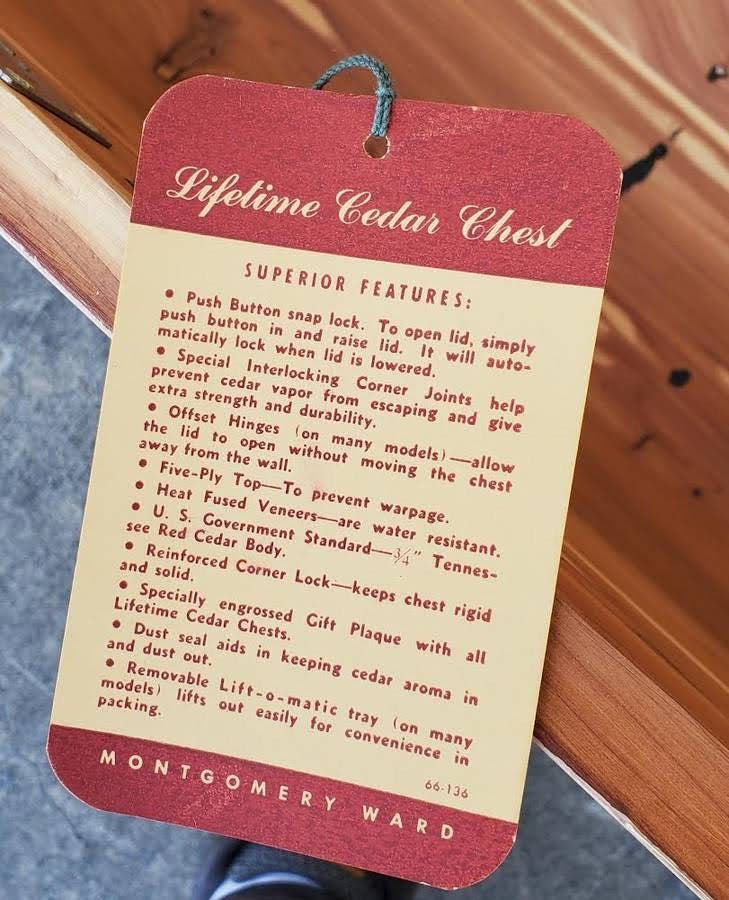 Lifetime Cedar Chest
SUPERIOR FEATURES:
• Push Button snap lock. To open lid, simply
push button in and raise lid. It will auto-
matically lock when lid is lowered.
• Special Interlocking Corner Joints help
prevent cedar vapor from escaping and give
extra strength and durability.
• Offset Hinges (on many models)—allow
the lid to open without moving the chest
away from the wall.
• Five-Ply Top—To prevent warpage.
• Heat Fused Veneers—are water resistant.
• U. S. Government Standard—3/4" Tennes-
see Red Cedar Body.
• Reinforced Corner Lock—keeps chest rigid
and solid.
• Specially engrossed Gift Plaque with all
Lifetime Cedar Chests.
• Dust seal aids in keeping cedar aroma in
and dust out.
• Removable Lift-o-matic tray (on many
models) lifts out easily for convenience in
packing.
66-136
MONTGOMERY WARD